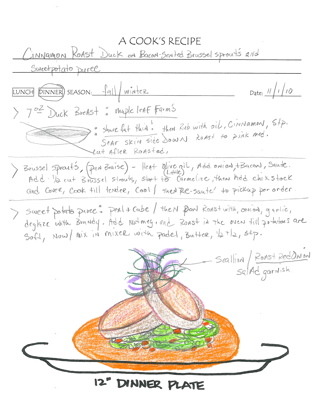 A COOK'S RECIPE
Cinnamon Roast Duck on Bacon-Sauted Brussel sprouts and
Sweetpotato puree
LUNCH DINNER SEASON: fall/winter Date: 11/1/10
> 7oz Duck Breast: maple leaf Farms
: Score fat Part: then rub with oil, Cinnamon, S+p.
Sear skin side Down roast to pink med.
cut after Roasted.
> Brussel sprouts, (Pan Braise) - Heat olive oil, Add onion, + Bacon, Saute.
Add 1/2 cut Brussel Sprouts, Start to Carmelize, then Add chix stock
and Cover, Cook till tender, Cool / then re-saute' to pickup per order.
> Sweet potato puree: peal + cube / then Pan Roast with, onion, garlic,
deglaze with Brandy. Add Nutmeg, and Roast in the oven till potatoes are
Soft, Now/mix in mixer with padel, Butter, 1/2 + 1/2, S+p.
Scallion / Roast Red Onion
Salad garnish
12" DINNER PLATE